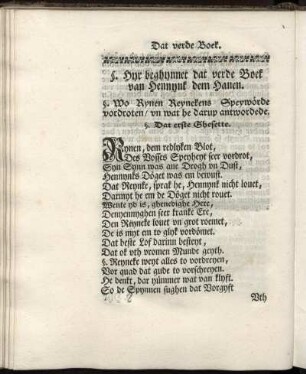 Dat verde Boek.
§. Hyr beghynnet dat verde Boek
van Hennynk dem Hanen.
§. Wo Rynen Reynekens Speywörde
vordroten / vn wat he darup antwordede.
§. Dat erste Ghesette.
Rynen, dem redlyken Blot,
Des Vosses Speyheyt seer vordrot,
Syn Synn was ane Drogh vn Dust,
Hennynks Döget was em bewust.
Dat Reynke, sprak he, Hennynk nicht louet,
Darmyt he em de Döget nicht rouet.
Wente yd is, ghenedighe Here,
Denyenyghen seer kranke Ere,
Den Reyneke louet vn grot roemet,
De is myt em to glyk vordömet.
Dat beste Lof darinn besteyt,
Dat ok vth vromen Munde geyth.
§. Reyneke weyt alles to vordreyen,
Vor quad dat gude to vorschreyen.
He denkt, dar nümmer wat van klyft.
So de Spynnen sughen dat Vorgyft
Vth